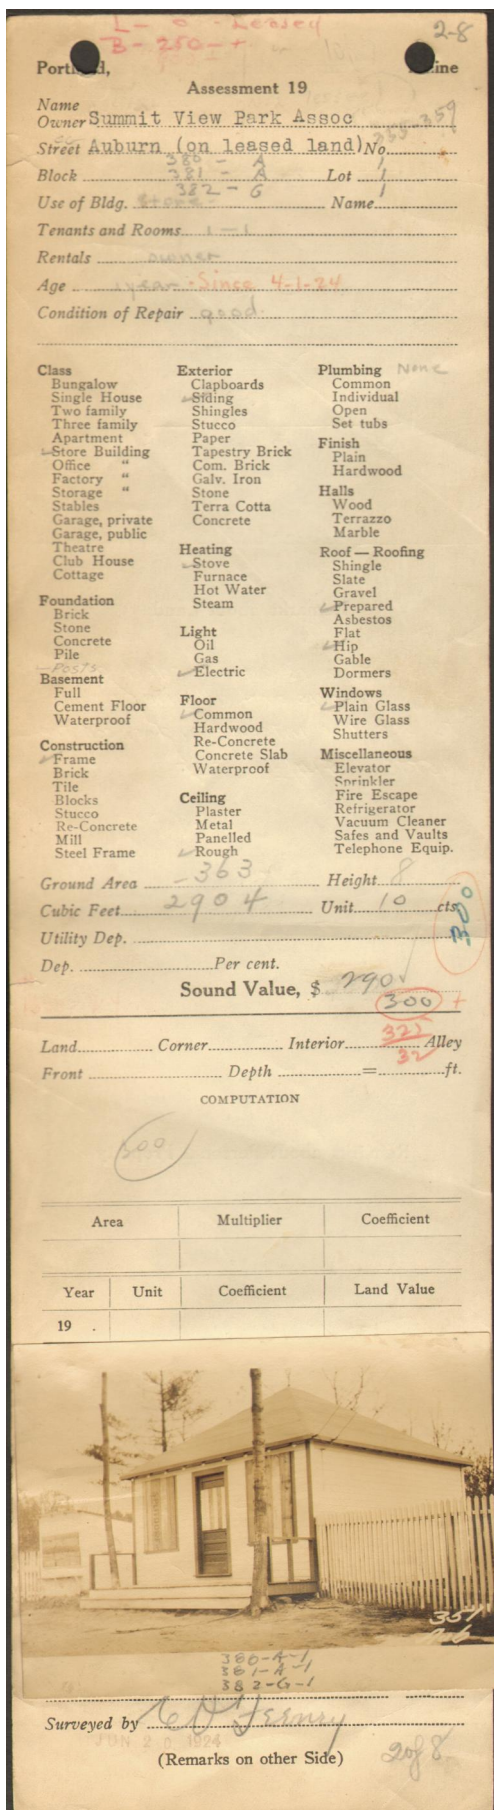 L - 0 - Leased 2-8
B - 250 - +
Portland, Maine
Assessment 19
Name
Owner Summit View Park Assoc
355-359
Street Auburn (on leased land) No.
380 - A 1
Block 381 - A Lot 1
382 - G 1
Use of Bldg. Store Name
Tenants and Rooms 1-1
Rentals owner
Age 1 year - Since 4-1-24
Condition of Repair good
Class
Bungalow
Single House
Two family
Three family
Apartment
Store Building
Office "
Factory "
Storage "
Stables
Garage, private
Garage, public
Theatre
Club House
Cottage
Foundation
Brick
Stone
Concrete
Pile
Posts
Basement
Full
Cement Floor
Waterproof
Construction
Frame
Brick
Tile
Blocks
Stucco
Re-Concrete
Mill
Steel Frame
Exterior
Clapboards
Siding
Shingles
Stucco
Paper
Tapestry Brick
Com. Brick
Galv. Iron
Stone
Terra Cotta
Concrete
Heating
Stove
Furnace
Hot Water
Steam
Light
Oil
Gas
Electric
Floor
Common
Hardwood
Re-Concrete
Concrete Slab
Waterproof
Ceiling
Plaster
Metal
Panelled
Rough
Plumbing None
Common
Individual
Open
Set tubs
Finish
Plain
Hardwood
Halls
Wood
Terrazzo
Marble
Roof — Roofing
Shingle
Slate
Gravel
Prepared
Asbestos
Flat
Hip
Gable
Dormers
Windows
Plain Glass
Wire Glass
Shutters
Miscellaneous
Elevator
Sprinkler
Fire Escape
Refrigerator
Vacuum Cleaner
Safes and Vaults
Telephone Equip.
Ground Area 363 Height 8
Cubic Feet 2904 Unit 10 cts.
300
Utility Dep.
Dep. Per cent.
Sound Value, $ 290
300 +
325
Land Corner Interior Alley
32
Front Depth = ft.
COMPUTATION
300
Area Multiplier Coefficient
Year Unit Coefficient Land Value
19 .
357
380-A-1
381-A-1
382-G-1
Surveyed by
JUN 20 1924
(Remarks on other Side) 2 of 8